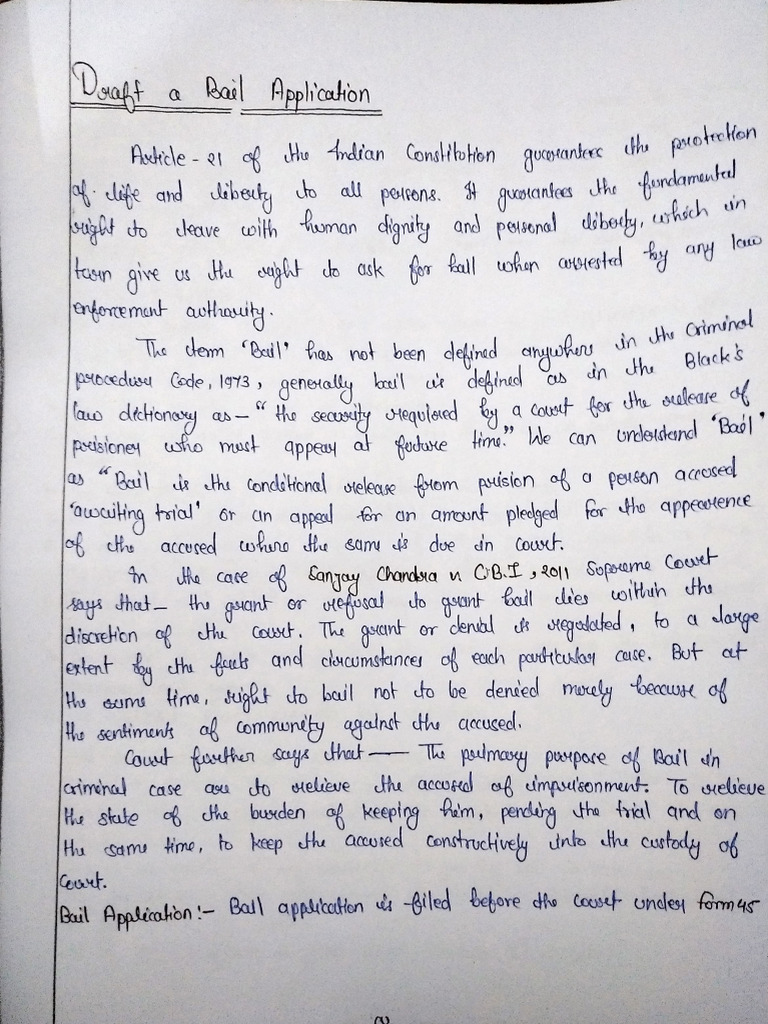 Draft a Bail Application
Article - 21 of the Indian Constitution guarantees the protection
of life and liberty to all persons. It guarantees the fundamental
right to leave with human dignity and personal liberty, which in
turn give us the right to ask for bail when arrested by any law
enforcement authority.
The term 'Bail' has not been defined anywhere in the Criminal
procedure Code, 1973, generally bail is defined as in the Black's
law dictionary as — "the security required by a court for the release of
prisioner who must appear at future time." We can understand 'Bail'
as "Bail is the conditional release from prision of a person accused
'awaiting trial' or an appeal for an amount pledged for the appearence
of the accused where the same is due in court.
In the case of Sanjay Chandra v. C.B.I, 2011 Supreme Court
says that — the grant or refusal to grant bail lies within the
discretion of the court. The grant or denial is regulated, to a large
extent by the facts and circumstances of each particular case. But at
the same time, right to bail not to be denied merely because of
the sentiments of community against the accused.
Court further says that — The primary purpose of Bail in
criminal case are to relieve the accused of imprisonment. To relieve
the state of the burden of keeping him, pending the trial and on
the same time, to keep the accused constructively into the custody of
Court.
Bail Application :- Bail application is filed before the court under form 45